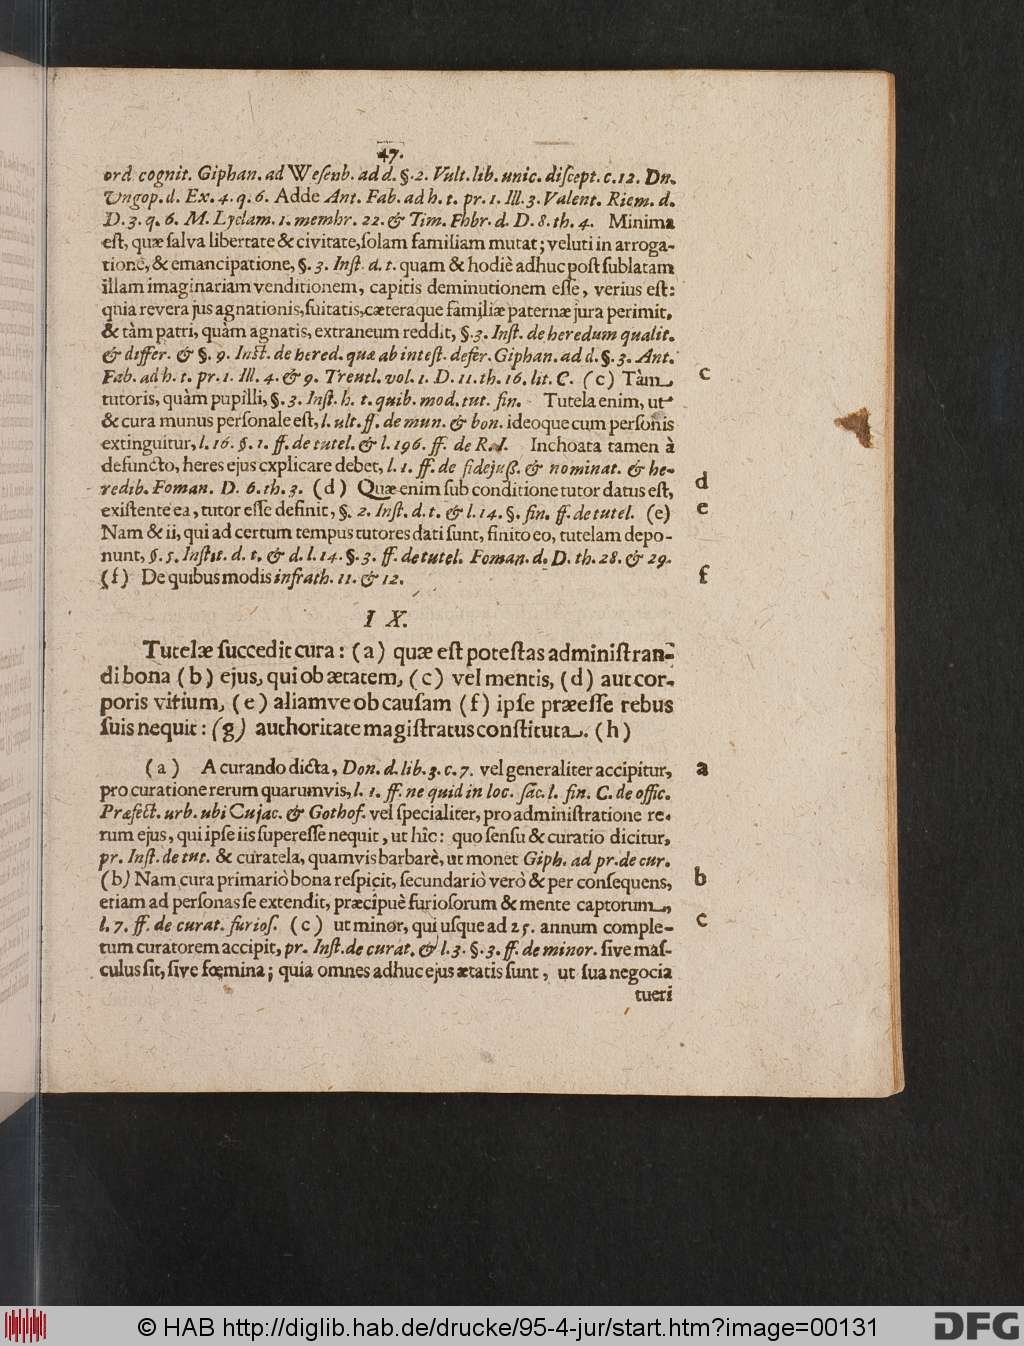 47.
ord cognit. Giphan. ad Weſenb. ad d. §. 2. Vult. lib. unic. diſcept. c. 12. Dn.
Ungop. d. Ex. 4. q. 6. Adde Ant. Fab. ad h. t. pr. 1. Ill. 3. Valent. Riem. d.
D. 3. q. 6. M. Lyclam. 1. membr. 22. & Tim. Fhbr. d. D. 8. th. 4. Minima
eſt, quæ ſalva libertate & civitate, ſolam familiam mutat; veluti in arroga-
tione, & emancipatione, §. 3. Inſt. d. t. quam & hodiè adhuc poſt ſublatam
illam imaginariam venditionem, capitis deminutionem eſſe, verius eſt:
quia revera jus agnationis, ſuitatis, cæteraque familiæ paternæ jura perimit,
& tàm patri, quàm agnatis, extraneum reddit, §. 3. Inſt. de heredum qualit.
& differ. & §. 9. Inst. de hered. quæ ab inteſt. defer. Giphan. ad d. §. 3. Ant.
Fab. ad h. t. pr. 1. Ill. 4. & 9. Treutl. vol. 1. D. 11. th. 16. lit. C. (c) Tàm c
tutoris, quàm pupilli, §. 3. Inſt. h. t. quib. mod. tut. fin. Tutela enim, ut
& cura munus perſonale eſt, l. ult. ff. de mun. & bon. ideoque cum perſonis
extinguitur, l. 16. §. 1. ff. de tutel. & l. 196. ff. de R. I. Inchoata tamen à
defuncto, heres ejus explicare debet, l. 1. ff. de fidejuß. & nominat. & he-
redib. Foman. D. 6. th. 3. (d) Quæ enim ſub conditione tutor datus eſt, d
exiſtente ea, tutor eſſe definit, §. 2. Inſt. d. t. & l. 14. §. fin. ff. de tutel. (e) e
Nam & ii, qui ad certum tempus tutores dati ſunt, finito eo, tutelam depo-
nunt, §. 5. Inſtit. d. t. & d. l. 14. §. 3. ff. de tutel. Foman. d. D. th. 28. & 29.
(f) De quibus modis infra th. 11. & 12. f
I X.
Tutelæ ſuccedit cura: (a) quæ est poteſtas adminiſtran-
di bona (b) ejus, qui ob ætatem, (c) vel mentis, (d) aut cor-
poris vitium, (e) aliamve ob cauſam (f) ipſe præeſſe rebus
ſuis nequit: (g) authoritate magiſtratus conſtituta. (h)
(a) A curando dicta, Don. d. lib. 3. c. 7. vel generaliter accipitur, a
pro curatione rerum quarumvis, l. 1. ff. ne quid in loc. ſac. l. fin. C. de offic.
Præfect. urb. ubi Cujac. & Gothof. vel ſpecialiter, pro adminiſtratione re-
rum ejus, qui ipſe iis ſupereſſe nequit, ut hîc: quo ſenſu & curatio dicitur,
pr. Inſt. de tut. & curatela, quamvis barbarè, ut monet Giph. ad pr. de cur.
(b) Nam cura primariò bona reſpicit, ſecundariò verò & per conſequens, b
etiam ad perſonas ſe extendit, præcipuè furioſorum & mente captorum,
l. 7. ff. de curat. furioſ. (c) ut minor, qui uſque ad 25. annum comple- c
tum curatorem accipit, pr. Inſt. de curat. & l. 3. §. 3. ff. de minor. ſive maſ-
culus ſit, ſive fœmina; quia omnes adhuc ejus ætatis ſunt, ut ſua negocia
tueri
© HAB http://diglib.hab.de/drucke/95-4-jur/start.htm?image=00131
DFG